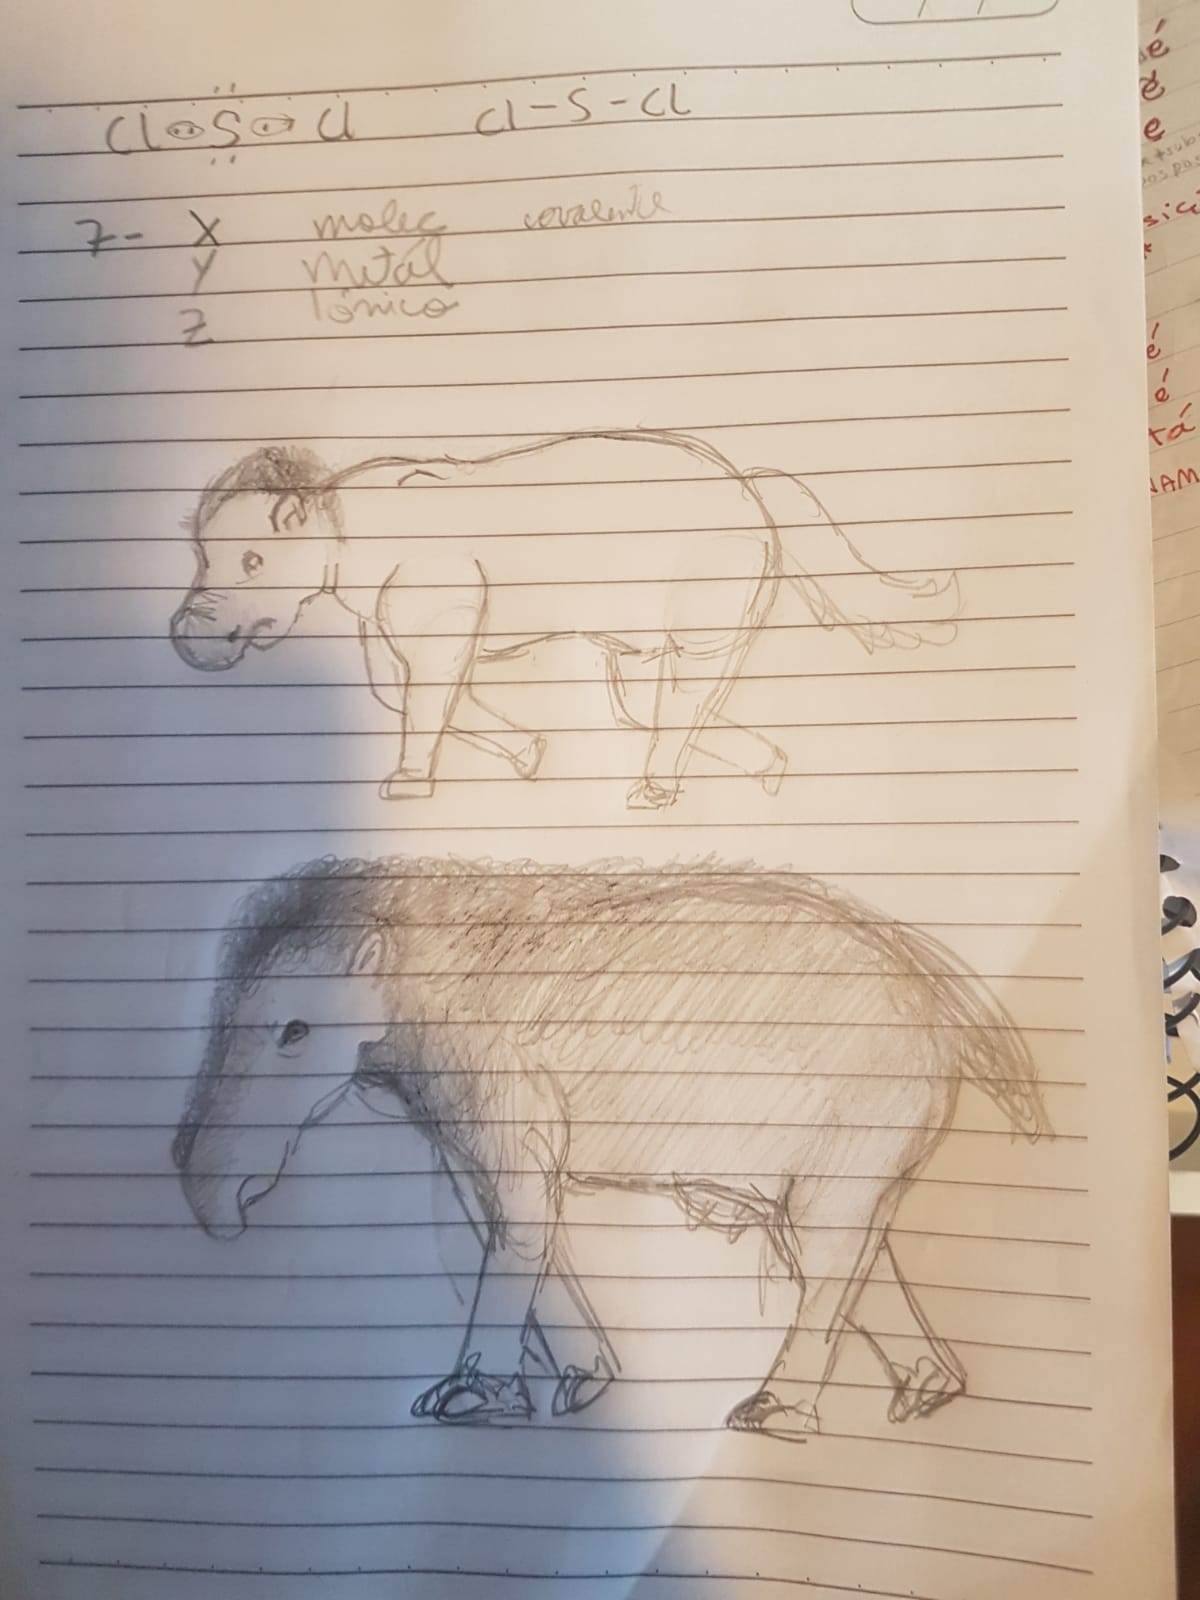 Cl S Cl   Cl-S-Cl
7- X molec covalente
Y Metál
Z Iônico
é
e
e
é
é
tá
NAM